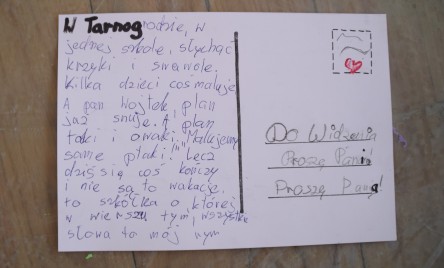 W Tarnogrodzie, w
jednej szkole, słychać
krzyki i swawole.
Kilka dzieci coś maluje
A pan Wojtek plan
już snuje. A plan
taki i owaki: "Malujemy
same ptaki!" Lecz
dziś się coś kończy
i nie są to wakacje,
to szkółka o której,
w wierszu tym, wszystkie
słowa to mój rym
Do Widzenia
Proszę Pani!
Proszę Pana!